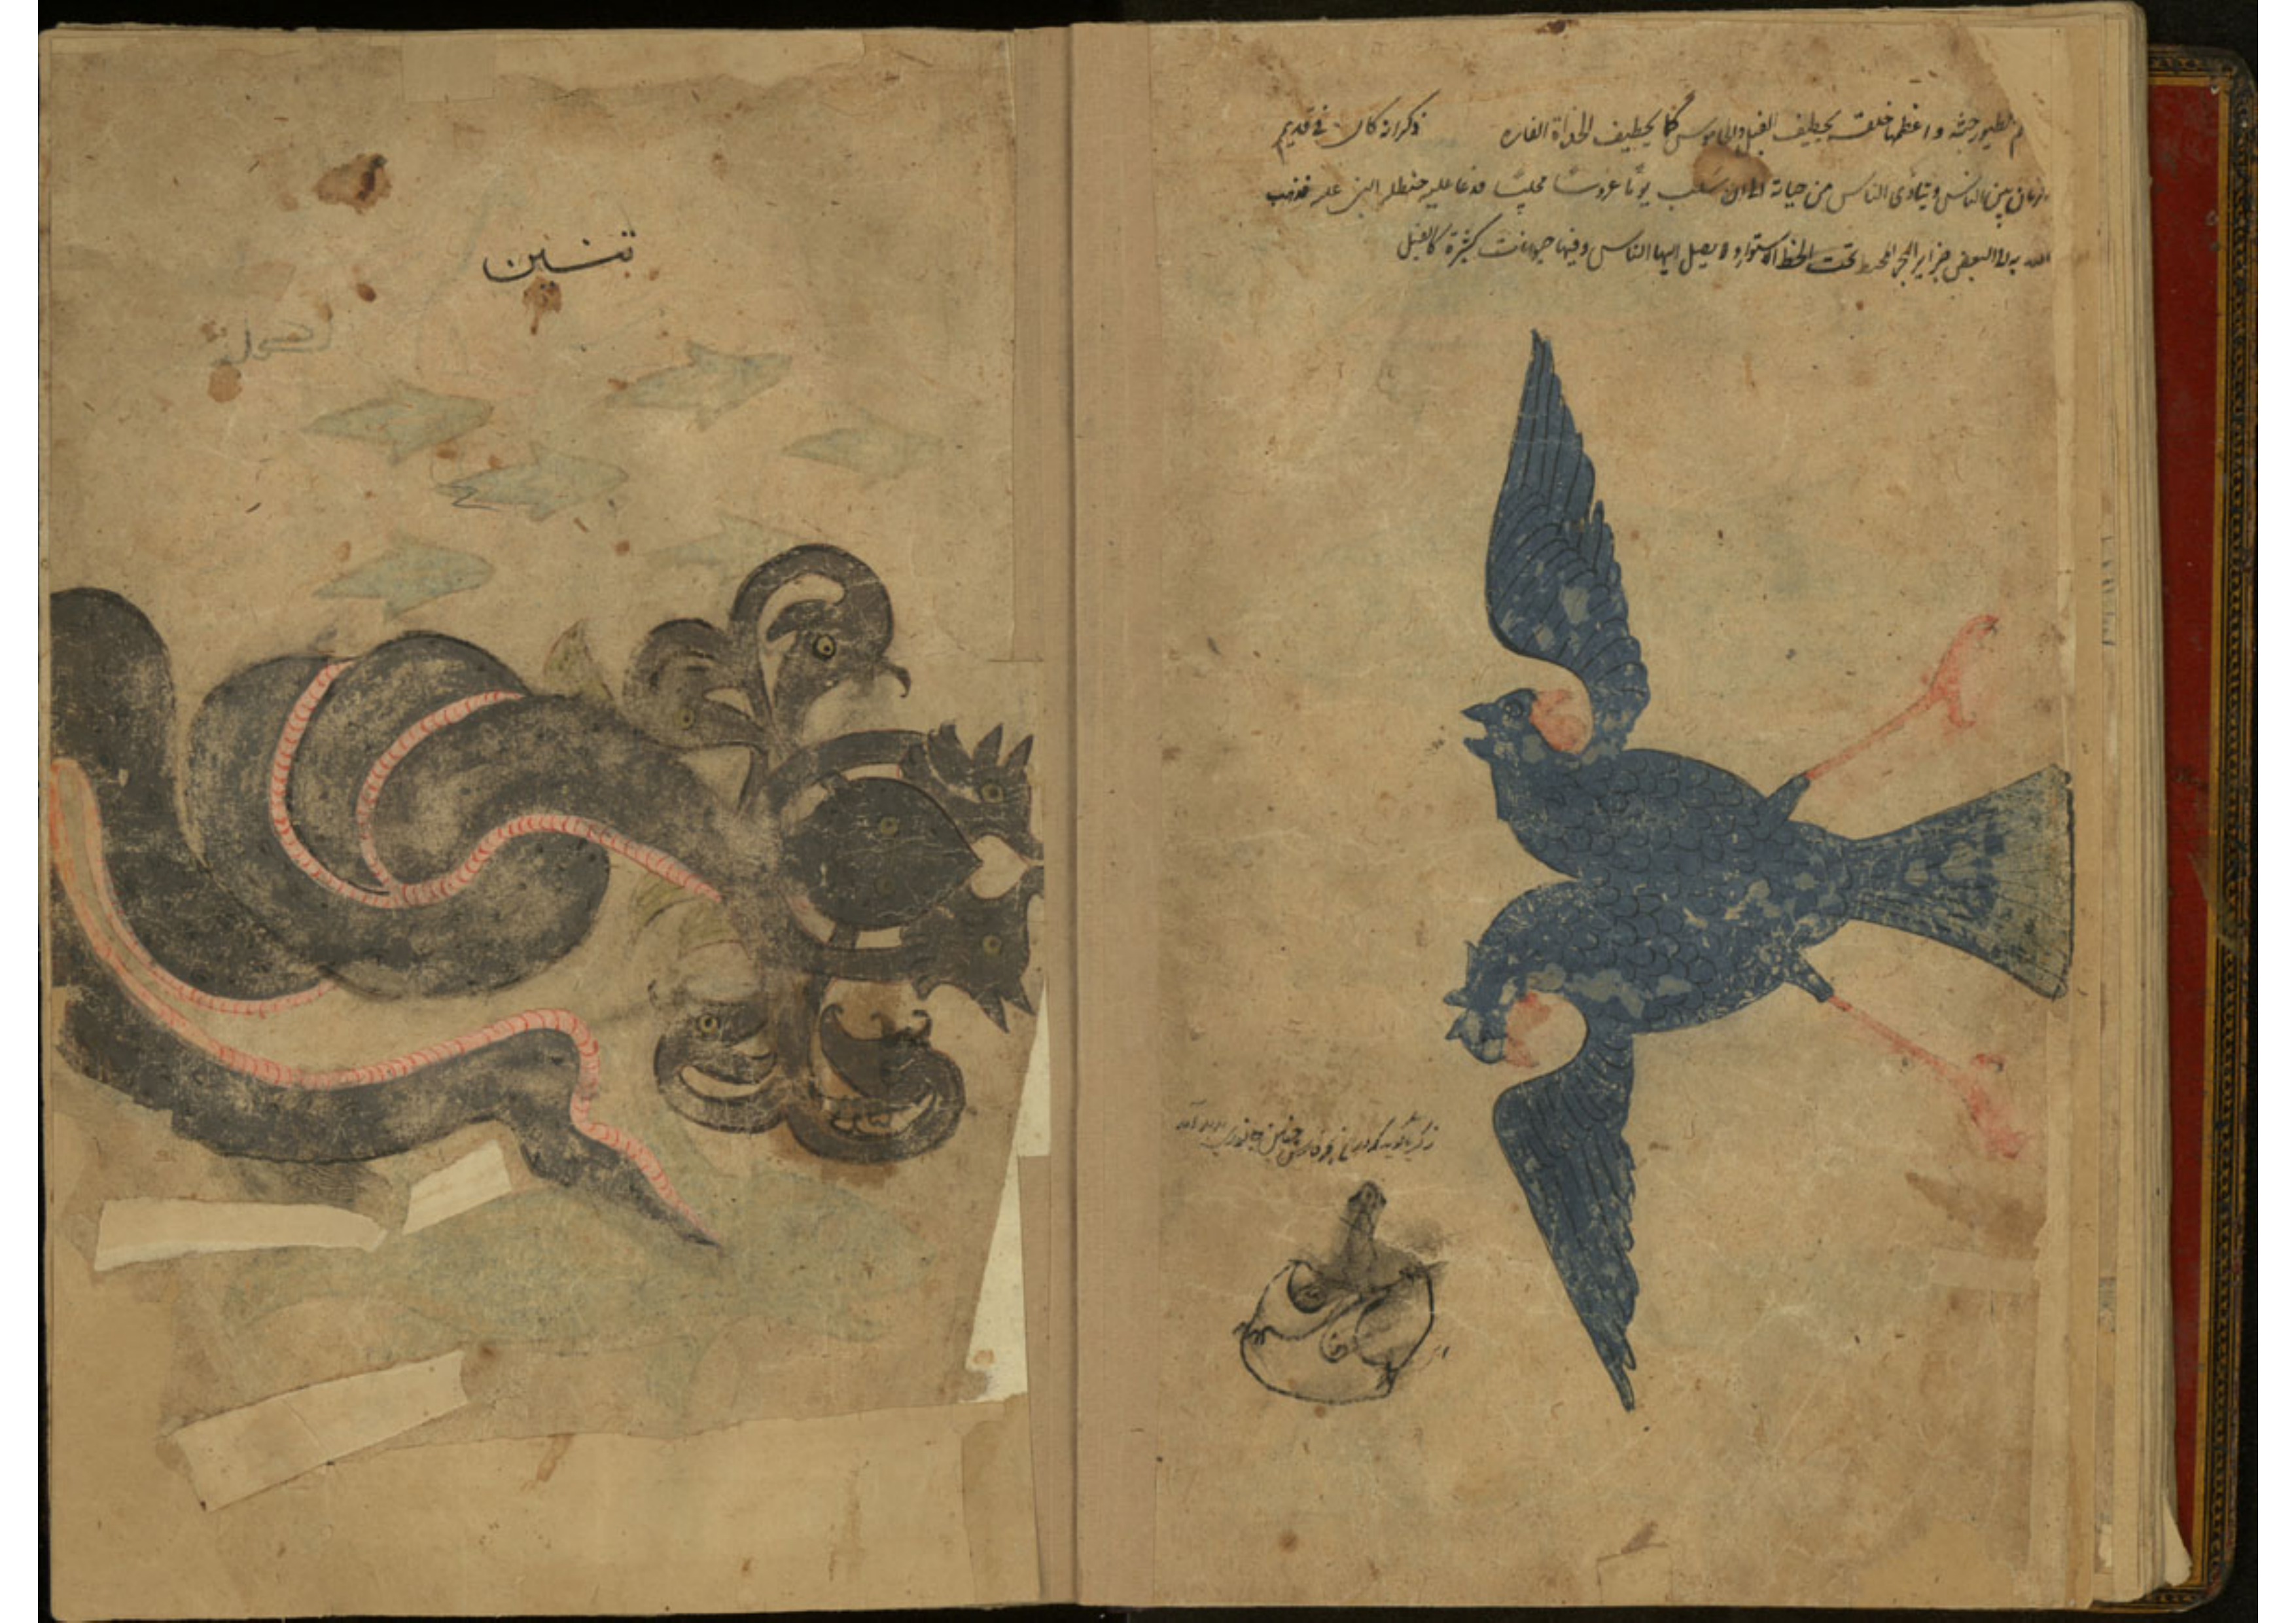 الطيور جثة و اعظمها خلقة يخطيف الفيل والجاموس كما يخطيف الحداة الفاره ذكر انه كان فى قديم
الزمان بين الناس و يتاذى الناس من جناية الى ان سلب يوما عروسا محليا فدعا عليه حنظله النبى عليه فذهب
الله به الى البعض جزاير البحر المحيط تحت الخط الاستوار و لا يصل اليها الناس و فيها حيوانات كثيرة كالفيل
چنين جانورى
تنسين